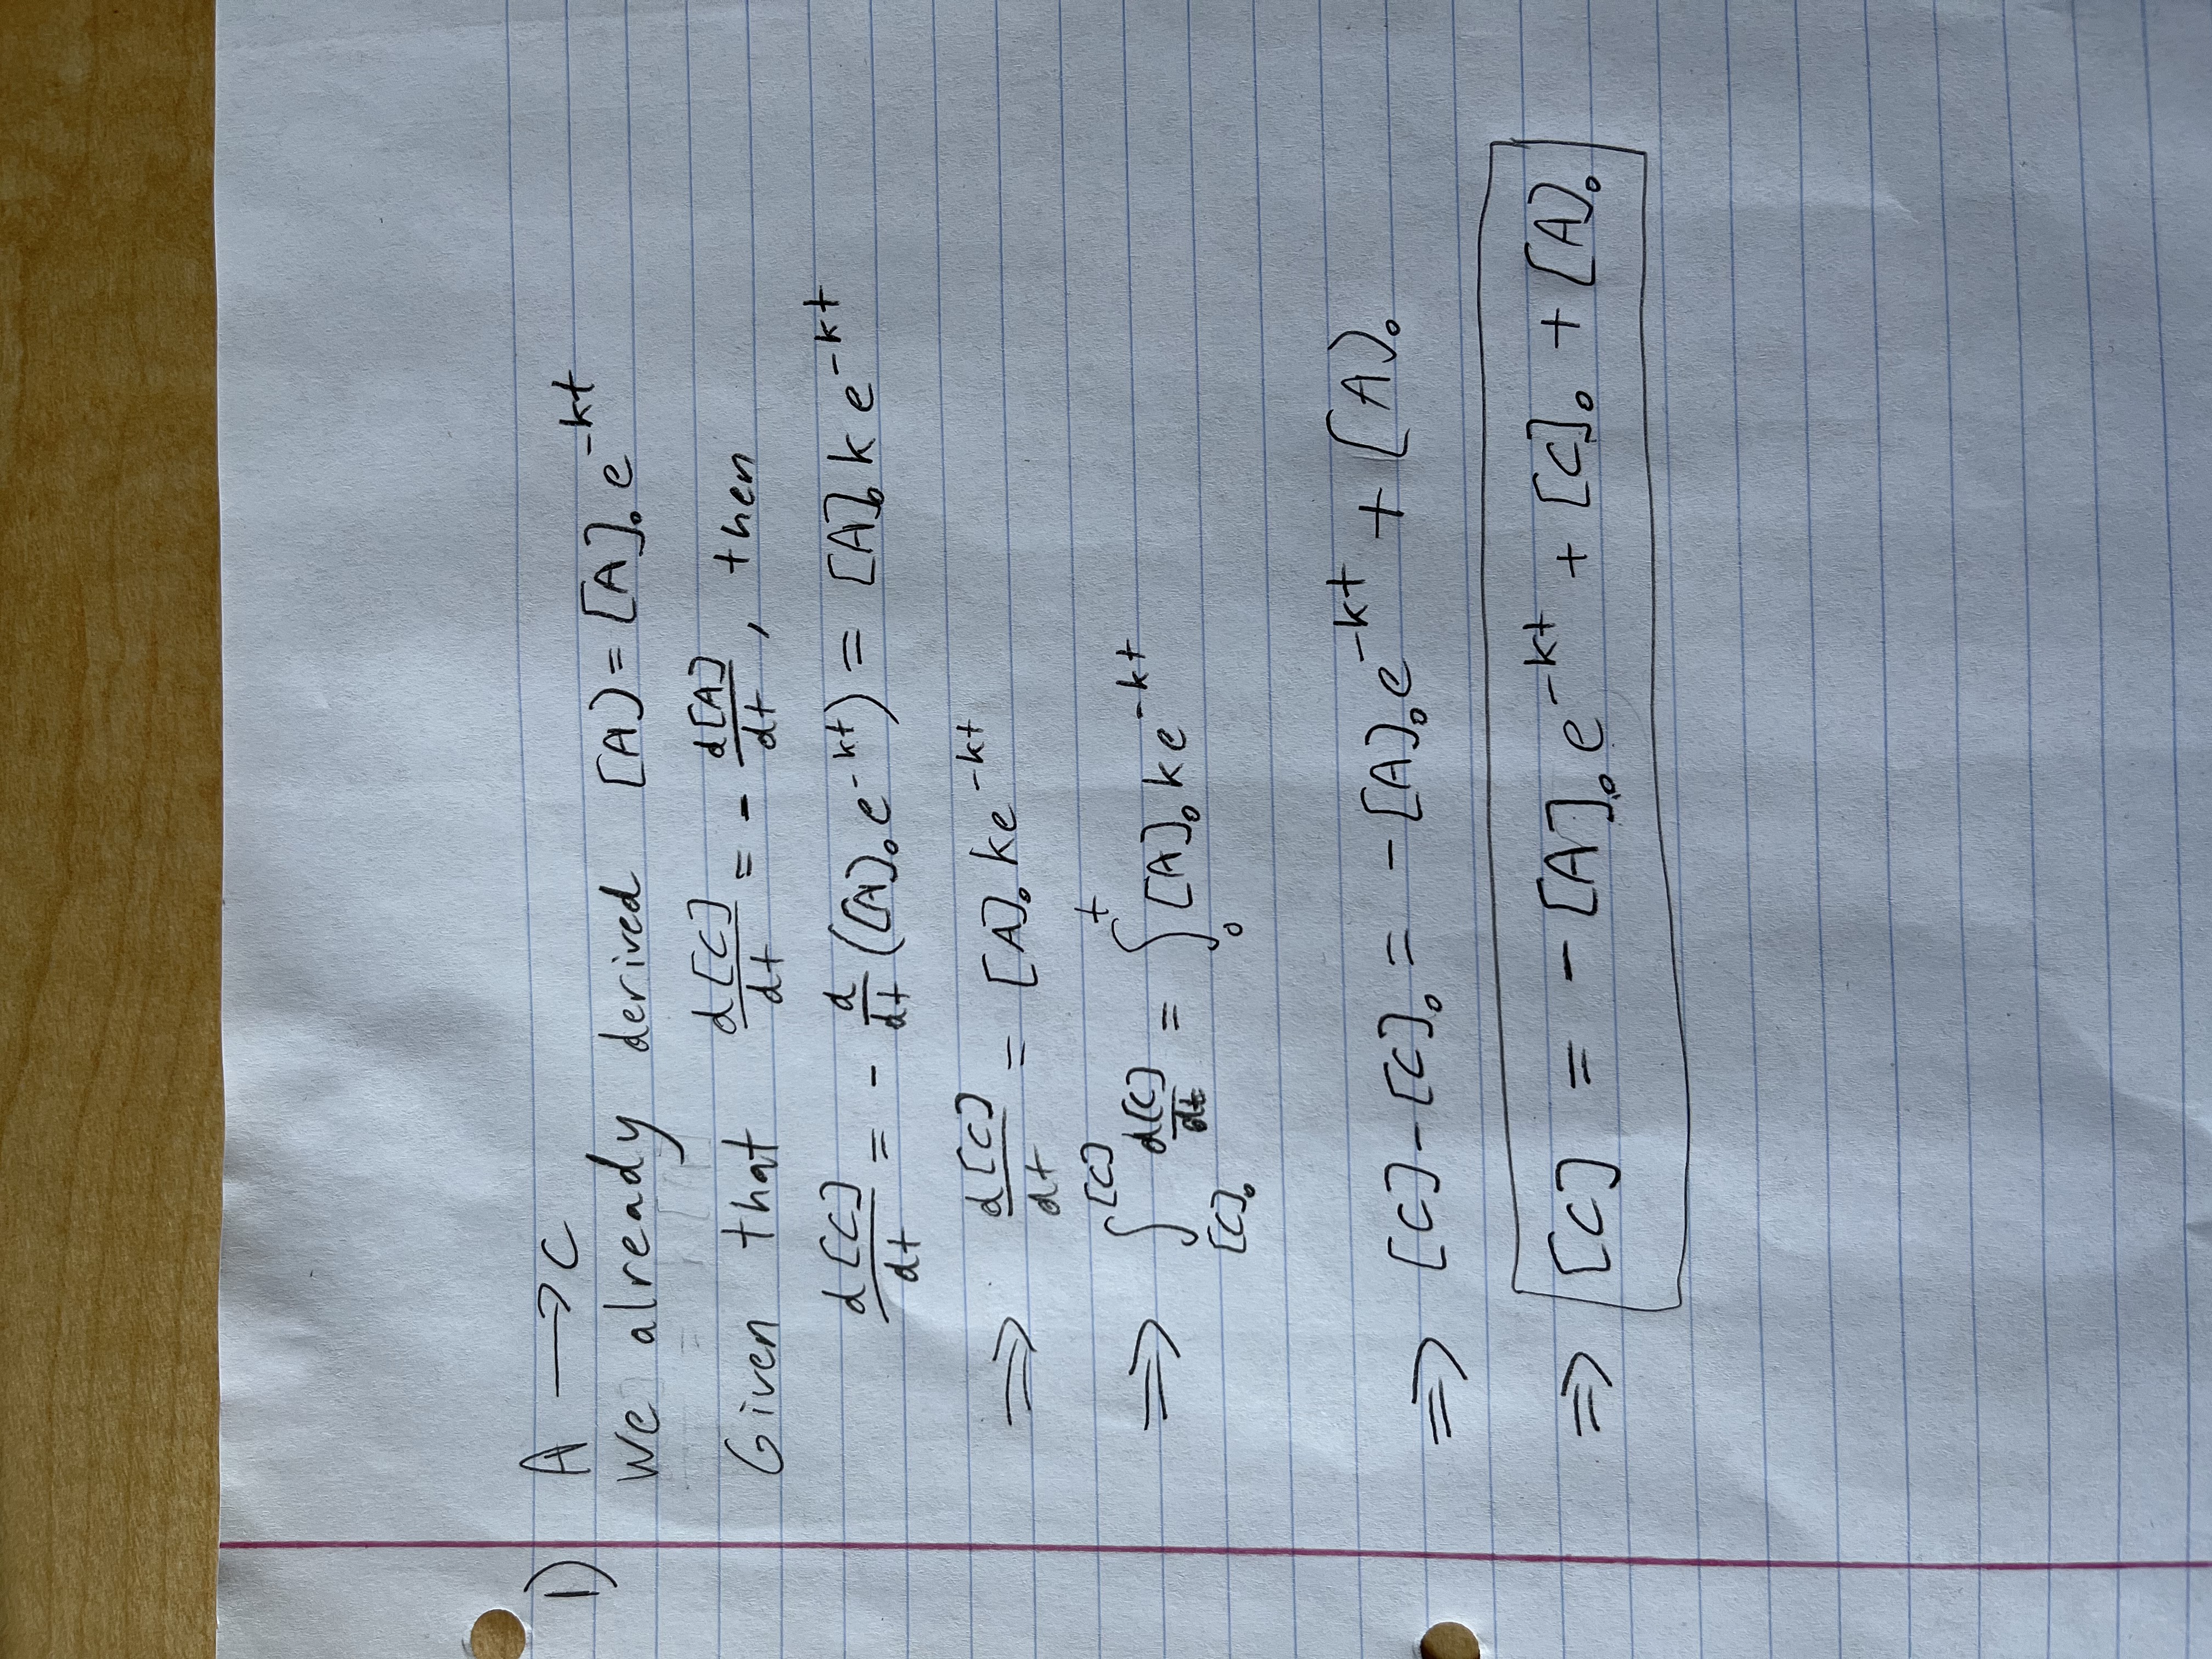 1) A ⟶ C
We already derived [A] = [A]₀ e^{-kt}
Given that d[C]/dt = - d[A]/dt, then
d[C]/dt = - d/dt ([A]₀ e^{-kt}) = [A]₀ k e^{-kt}
⇒ d[C]/dt = [A]₀ k e^{-kt}
⇒ ∫_{[C]₀}^{[C]} d[C]/dt = ∫_0^t [A]₀ k e^{-kt}
⇒ [C] - [C]₀ = -[A]₀ e^{-kt} + [A]₀
⇒ [C] = -[A]₀ e^{-kt} + [C]₀ + [A]₀